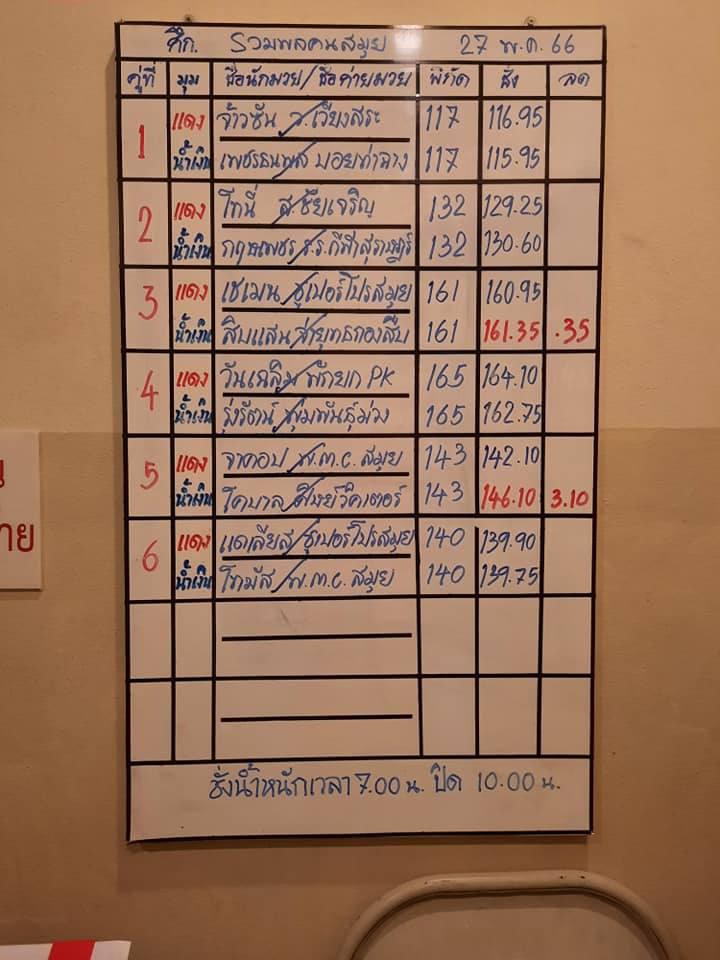 ศึก. รวมพลคนสมุย 27 พ.ค. 66
คู่ที่ มุม ชื่อนักมวย/ชื่อค่ายมวย พิกัด ชั่ง ลด
1 แดง จ้าวซัน / ส.เวียงสระ 117 116.95
น้ำเงิน เพชรธนพล / บอยท่าฉาง 117 115.95
2 แดง โทนี่ / ส.ชัยเจริญ 132 129.25
น้ำเงิน กฤษเพชร / ร.ร.กีฬาสุราษฎร์ 132 130.60
3 แดง เชเมน / ซูเปอร์โปรสมุย 161 160.95
น้ำเงิน สิบแสน / 161 161.35 .35
4 แดง วันเฉลิม / พักยก PK 165 164.10
น้ำเงิน รุ่งรัตน์ / ชุมพันธุ์ม่วง 165 162.75
5 แดง จาคอป / พ.ท.c. สมุย 143 142.10
น้ำเงิน โคบาล / ศิษย์วิคเตอร์ 143 146.10 3.10
6 แดง แดเลียส / ซูเปอร์โปรสมุย 140 139.90
น้ำเงิน โทมัส / พ.ท.c. สมุย 140 139.75
ชั่งน้ำหนักเวลา 7.00 น. ปิด 10.00 น.